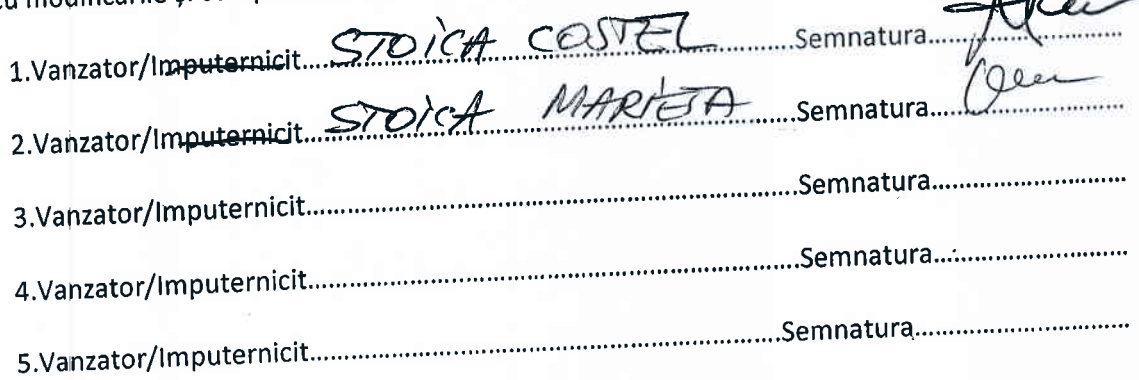 1.Vanzator/Imputernicit....STOICA COSTEL..............Semnatura..............................
2.Vanzator/Imputernicit....STOICA MARIETA.......Semnatura..............................
3.Vanzator/Imputernicit......................................................................Semnatura..............................
4.Vanzator/Imputernicit......................................................................Semnatura..............................
5.Vanzator/Imputernicit...................................................................Semnatura..............................